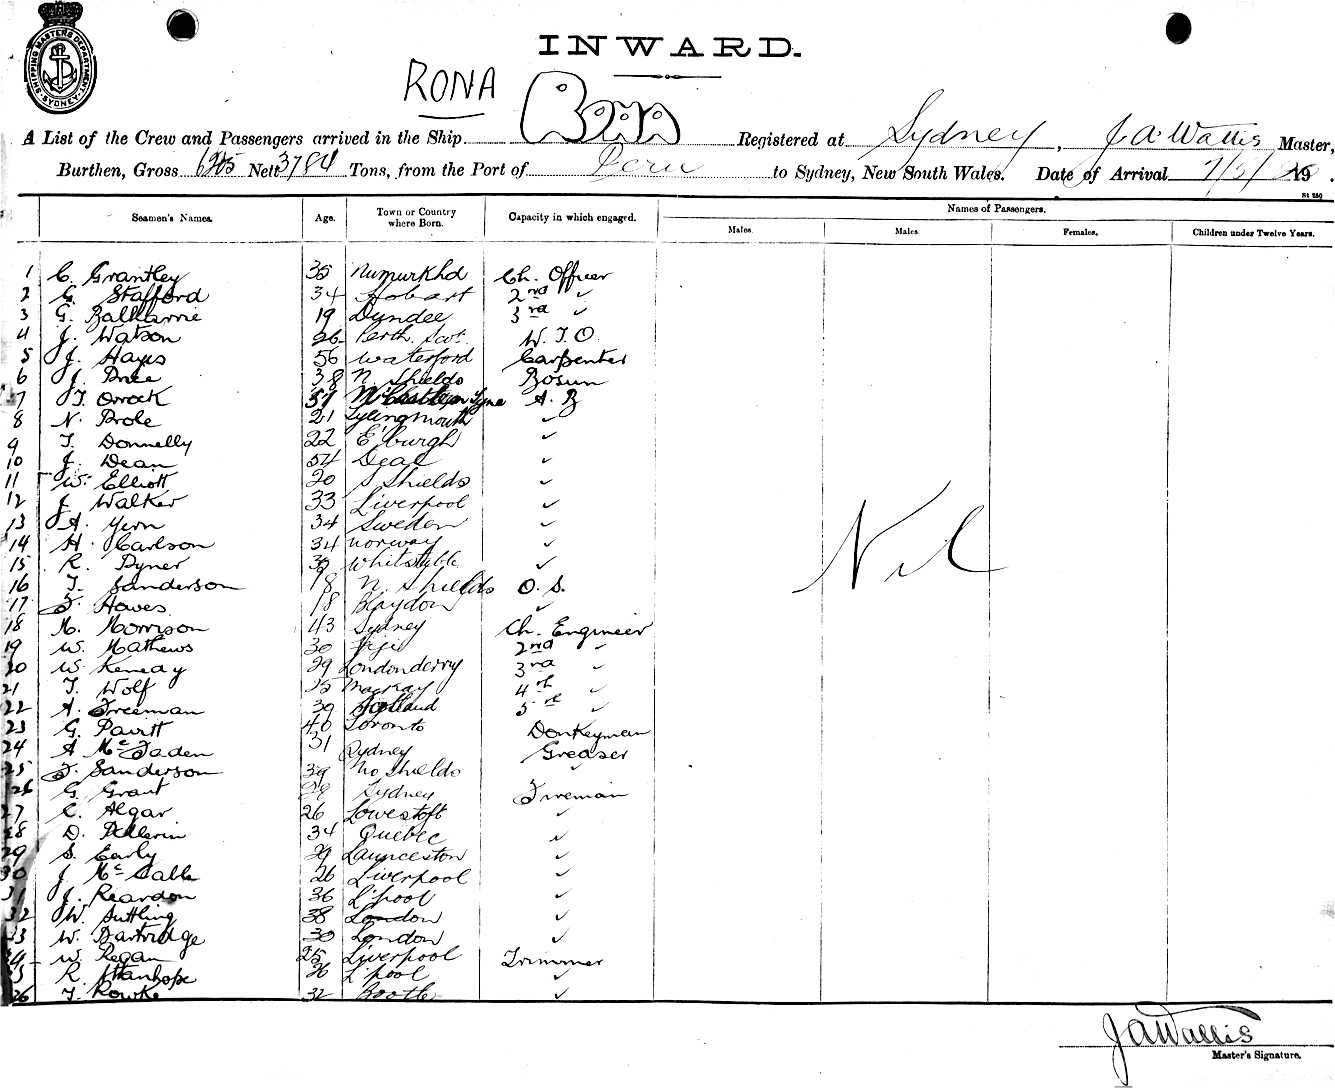 SHIPPING MASTERS DEPARTMENT SYDNEY
INWARD.
RONA
Rona
A List of the Crew and Passengers arrived in the Ship Registered at Sydney, J A Wallis Master,
Burthen, Gross Nett 3784 Tons, from the Port of to Sydney, New South Wales. Date of Arrival 19 .
Seamen's Names. Age. Town or Country where Born. Capacity in which engaged. Names of Passengers.
Males. Males Females. Children under Twelve Years.
1 C. Grantley 35 Numurkhd Ch. Officer
2 G. Stafford 34 Hobart 2nd ✓
3 G. 19 Dundee 3rd ✓
4 J. Watson 26 Perth Scot. W. T. O.
5 J. Hayes 56 Waterford Carpenter
6 J. Price 38 N. Shields Bosun
7 T. Orrock N'Castle on Tyne A. B
8 N. Brole 21 ✓
9 T. Donnelly 22 E'burgh ✓
10 J. Dean 54 Deal ✓
11 W. Elliott 20 S Shields ✓
12 J. Walker 33 Liverpool ✓
13 A. 34 Sweden ✓
14 H. Carlson 34 Norway ✓
15 R. Dyner Whitstable ✓
16 T. Sanderson 18 N. Shields O. S.
17 F. Hawes 18 Blaydon ✓
18 M. Morrison 43 Sydney Ch. Engineer
19 W. Mathews 30 Fiji 2nd ✓
20 W. Kenedy 29 Londonderry 3rd ✓
21 T. Wolf Mackay 4th ✓
22 A. Freeman 39 5th ✓
23 G. 40 Toronto Donkeyman
24 A McFaden 31 Sydney Greaser
25 F. Sanderson 39 No Shields ✓
26 G. Grant Sydney Fireman
27 C. Algar 26 Lowestoft ✓
28 D. 34 Quebec ✓
29 S. Early 29 Launceston ✓
30 J. 26 Liverpool ✓
31 J. Reardon 36 L'pool ✓
32 W. Suttling 38 London ✓
33 W. Bartridge 30 London ✓
34 W. Regan 25 Liverpool Trimmer
35 R. Stanhope 26 L'pool ✓
36 T. Rourke 32 Bootle ✓
Nil
J A Wallis
Master's Signature.